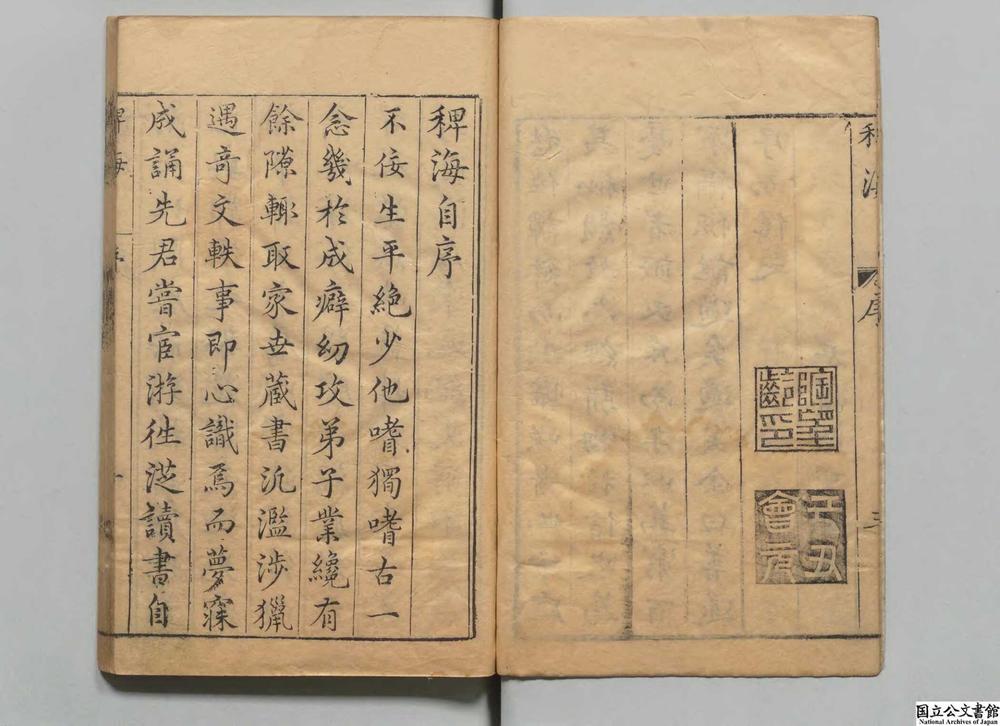 稗海
序
三
陶望
齡印
己丑
會元
稗海自序
不佞生平絶少他嗜獨嗜古一
念幾於成癖幼攻弟子業纔有
餘隙輙取家世藏書汎濫涉獵
遇奇文軼事即心識焉而夢寐
成誦先君嘗宦游徃從讀書自
稗海
序
一
国立公文書館
National Archives of Japan